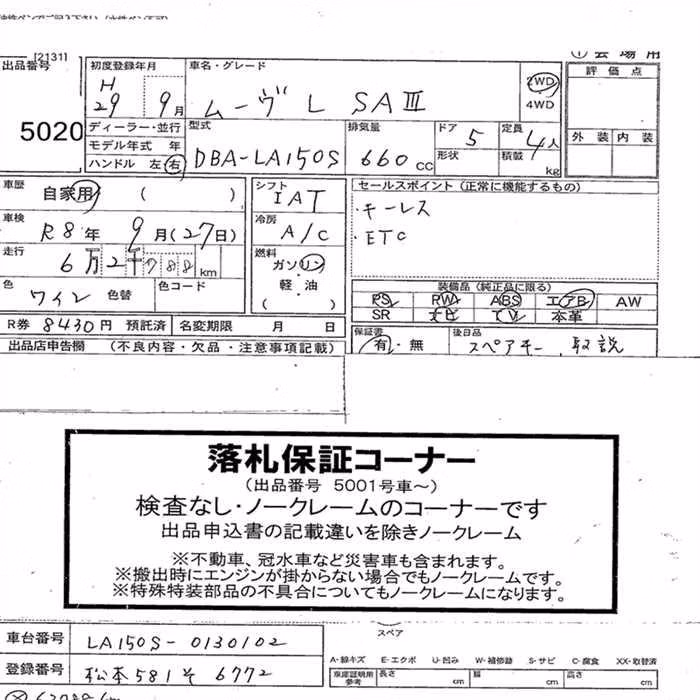 [2131]
① 会場用
出品番号
5020
初度登録年月
H29 9月
車名・グレード
ムーヴ L SAⅢ
2WD
4WD
評価点
外装 内装
ディーラー・並行
モデル年式 年
ハンドル 左 右
型式
DBA-LA150S
排気量
660 CC
ドア
5
形状
定員
4人
積載
kg
車歴
自家用 ( )
車検
R8年 9月(27日)
走行
6万2千788km
色
ワイン 色替
色コード
シフト
IAT
冷房
A/C
燃料
ガソリン
軽・油
( )
セールスポイント (正常に機能するもの)
・キーレス
・ETC
装備品 (純正品に限る)
PS RW ABS エアB AW
SR ナビ TV 本革
R券 8430円 預託済
名変期限 月 日
保証書
有・無
後日品
スペアキー、取説
出品店申告欄 (不良内容・欠品・注意事項記載)
落札保証コーナー
(出品番号 5001号車～)
検査なし・ノークレームのコーナーです
出品申込書の記載違いを除きノークレーム
※不動車、冠水車など災害車も含まれます。
※搬出時にエンジンが掛からない場合でもノークレームです。
※特殊特装部品の不具合についてもノークレームになります。
車台番号 LA150S-0130102
登録番号 松本 581 そ 6772
スペア
A-線キズ E-エクボ U-凹み W-補修跡 S-サビ C-腐食 XX-取替済
車庫証明用参考 長さ cm 幅 cm 高さ cm